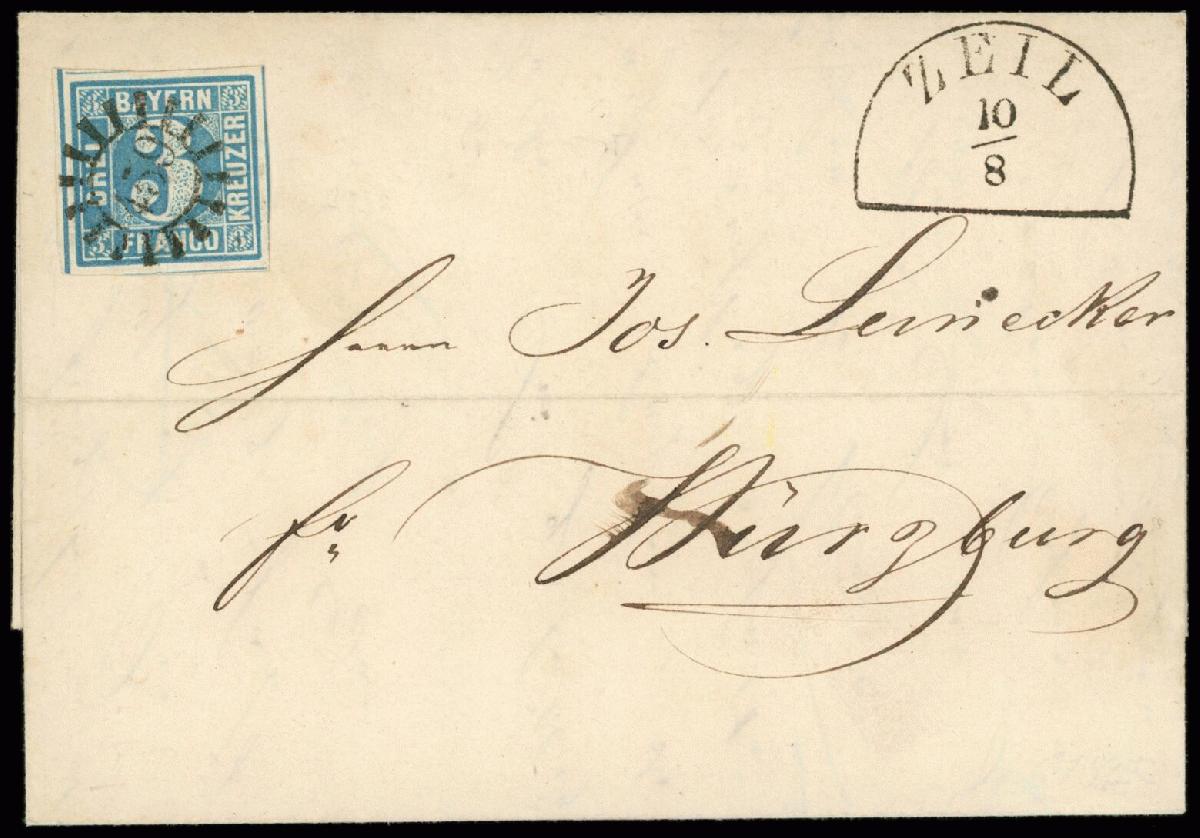 BAYERN
DREI
KREUZER
FRANCO
ZEIL
10
8
Herrn Jos. Leinecker
fr.
Würzburg